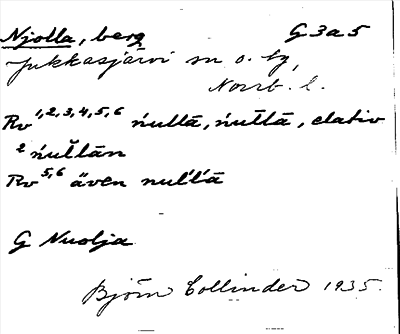 Njolla, berg G3a5
Jukkasjärvi sn o. tg,
Norrb. l.
Rv 1,2,3,4,5,6 ńullā, ńul̄lā, elativ
2 ńullān
Rv 5,6 även nullā
G Nuolja
Björn Collinder 1935.